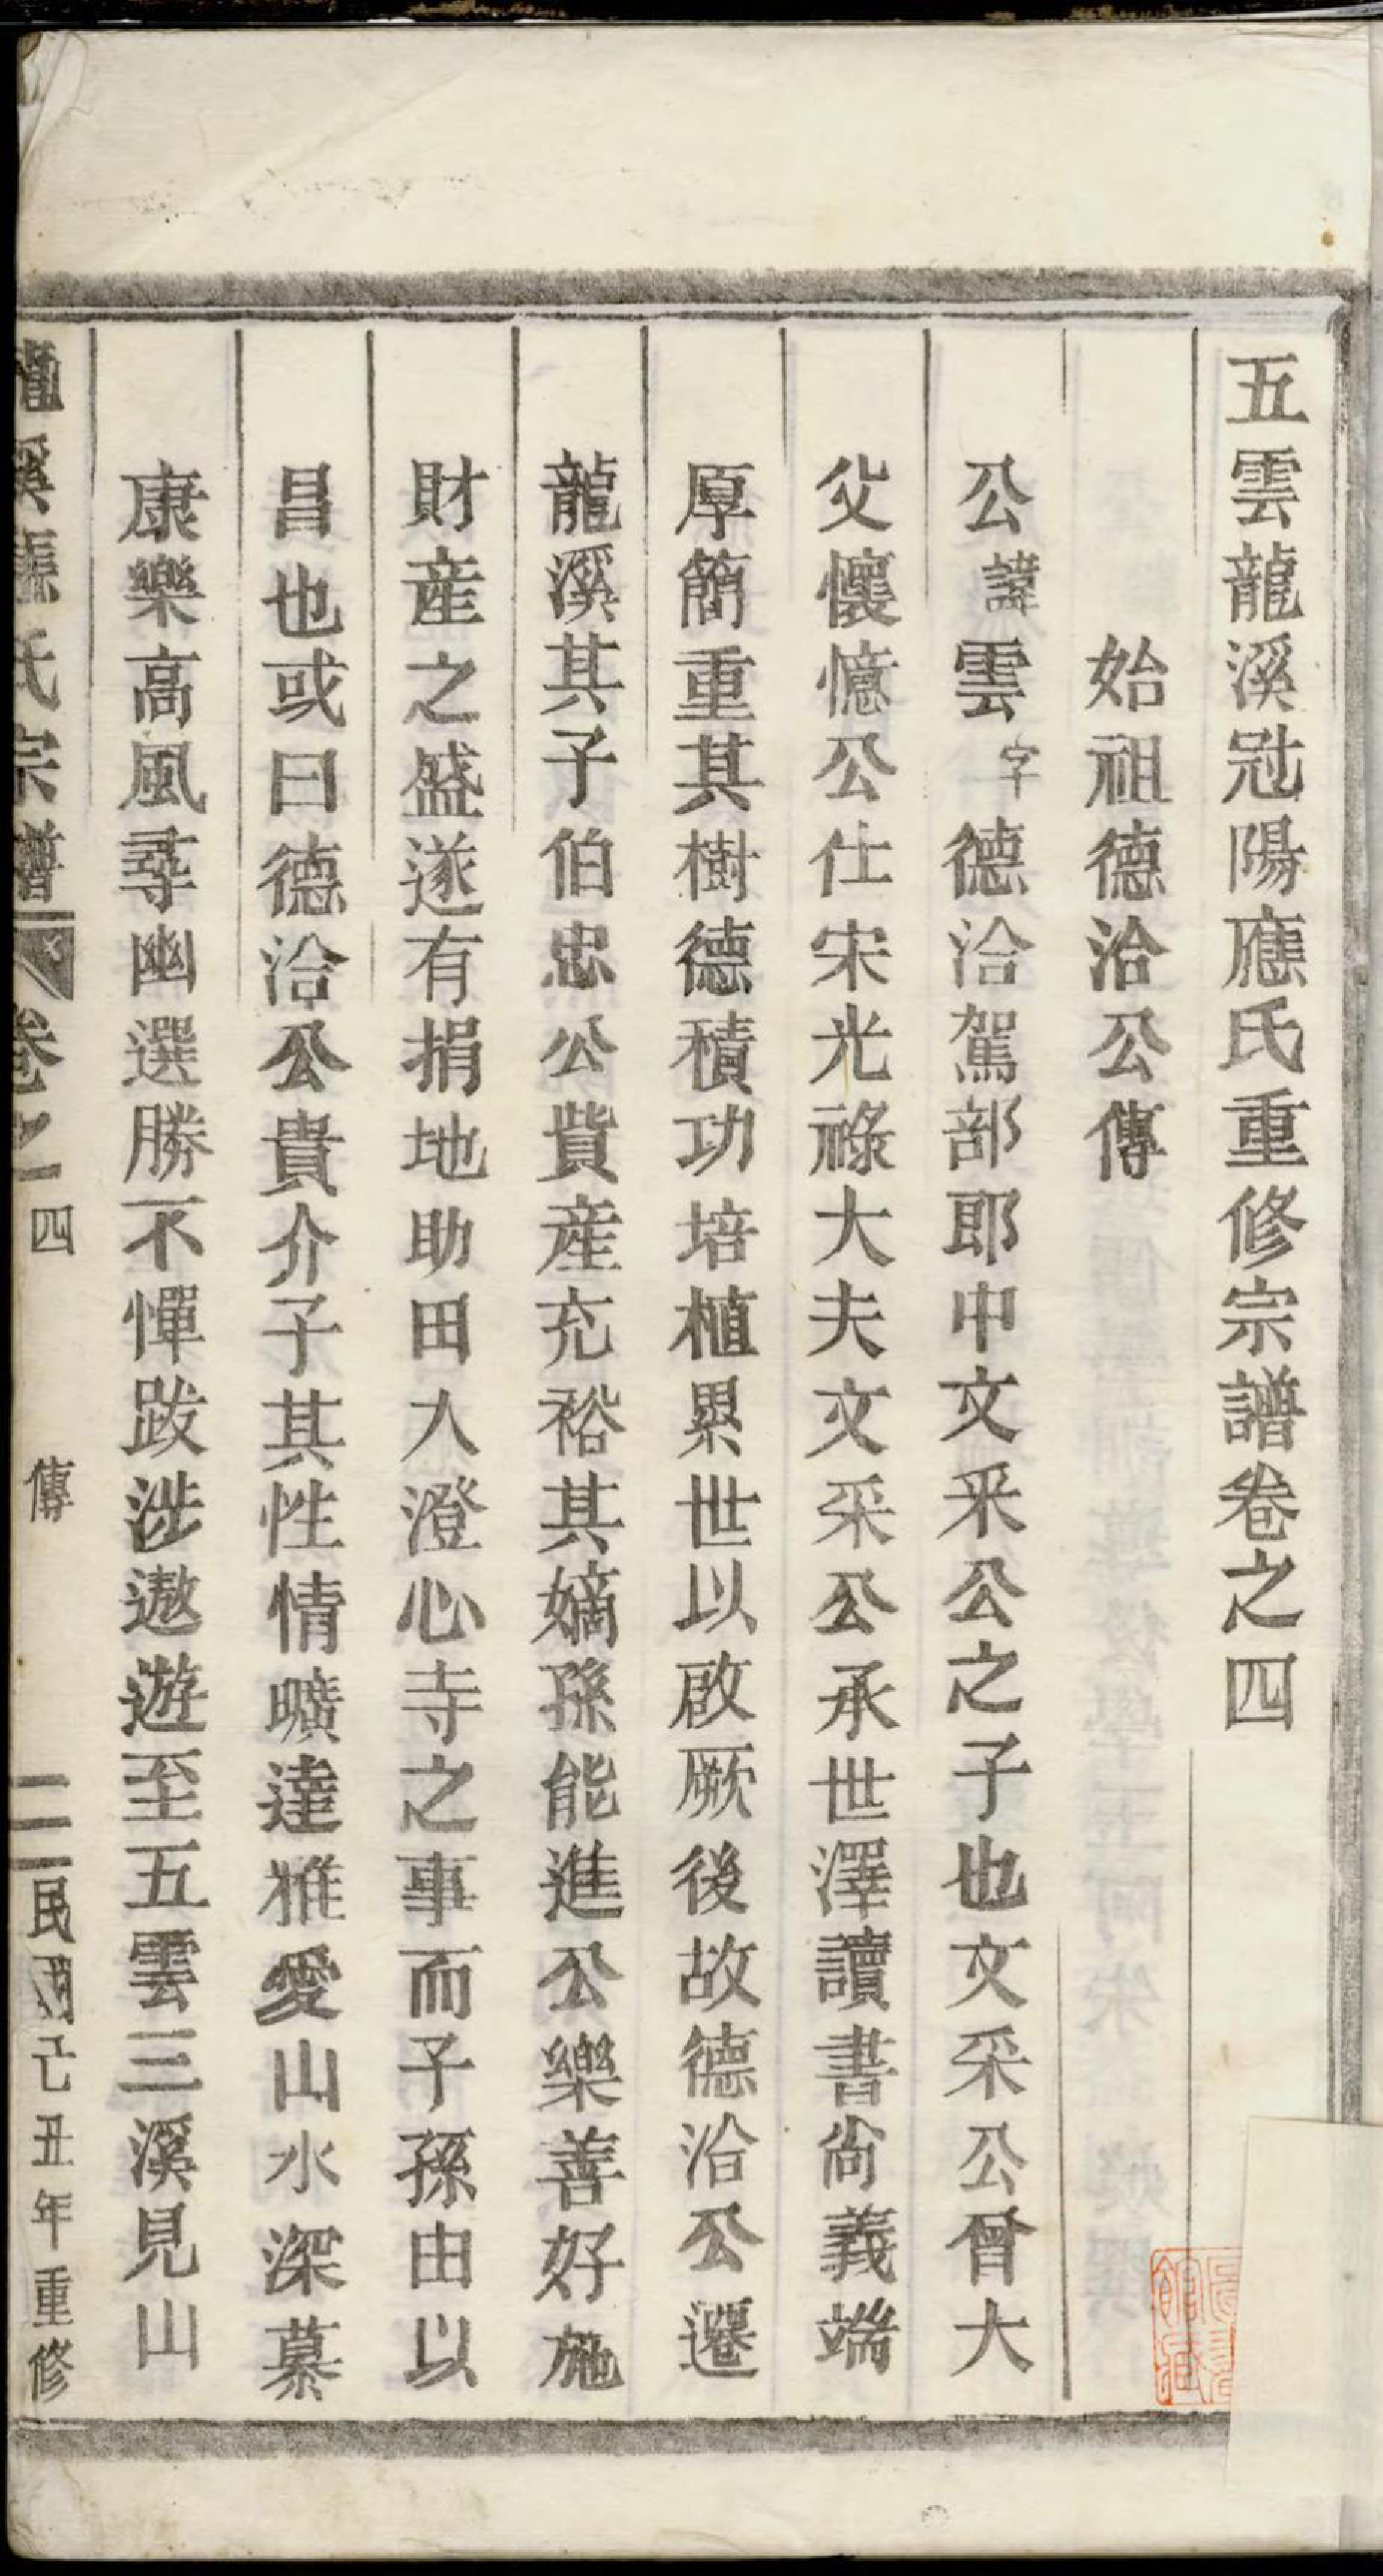 五雲龍溪冠陽應氏重修宗譜卷之四
始祖德洽公傳
公諱雲字德洽駕部郎中文采公之子也文采公曾大
父懷憶公仕宋光祿大夫文采公承世澤讀書尙義端
厚簡重其樹德積功培植累世以啟厥後故德洽公遷
龍溪其子伯忠公貲産充裕其嫡孫能進公樂善好施
財産之盛遂有捐地助田入澄心寺之事而子孫由以
昌也或曰德洽公貴介子其性情曠達雅愛山水深慕
康樂高風尋幽選勝不憚跋涉遨遊至五雲三溪見山
龍溪應氏宗譜 卷之四 傳 一 民國己丑年重修